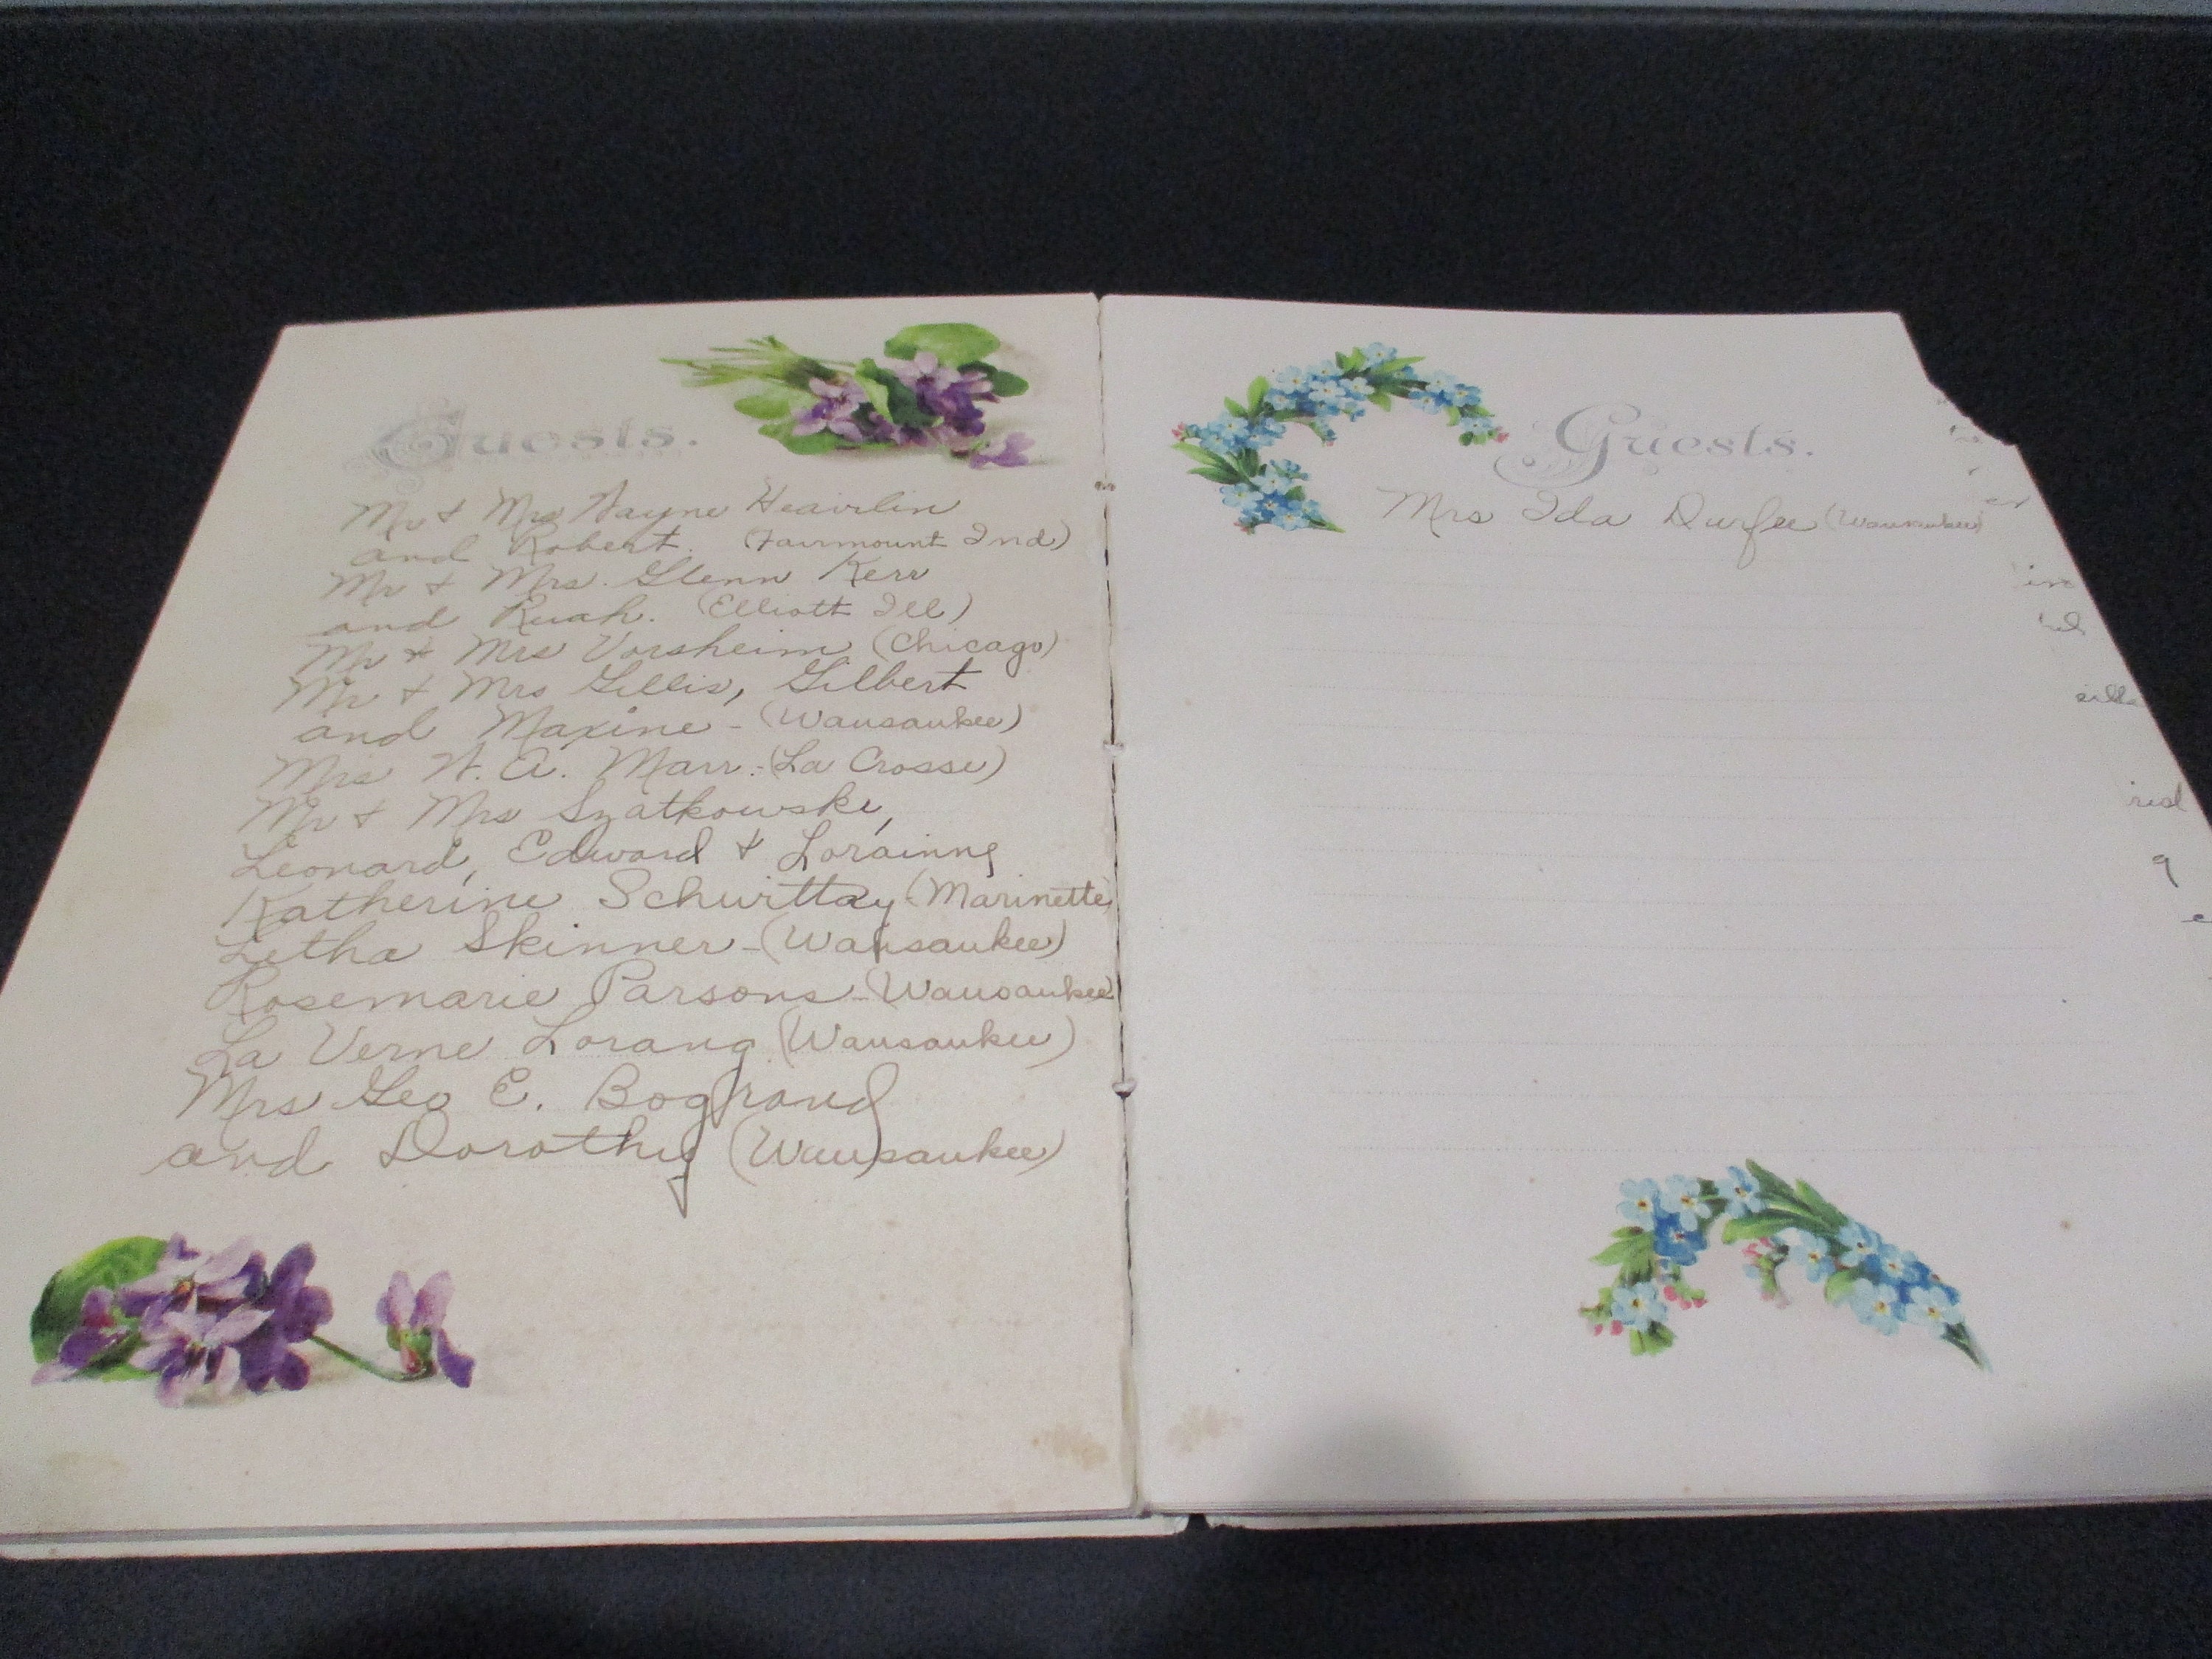 Guests.
Mr & Mrs Wayne Heavilin
and Robert. (Fairmount Ind)
Mr & Mrs. Glenn Kerr
and Ruah. (Elliott Ill)
Mr & Mrs Vorsheim (Chicago)
Mr & Mrs Gillis, Gilbert
and Maxine - (Wausaukee)
Mrs W. A. Marr - (La Crosse)
Mr & Mrs Szatkowski,
Leonard, Edward & Lorainne
Katherine Schwittay (Marinette)
Letha Skinner - (Wausaukee)
Rosemarie Parsons - (Wausaukee)
La Verne Lorang (Wausaukee)
Mrs Geo E.
and Dorothy (Wausaukee)
Guests.
Mrs Ida Durfee (Wausaukee)